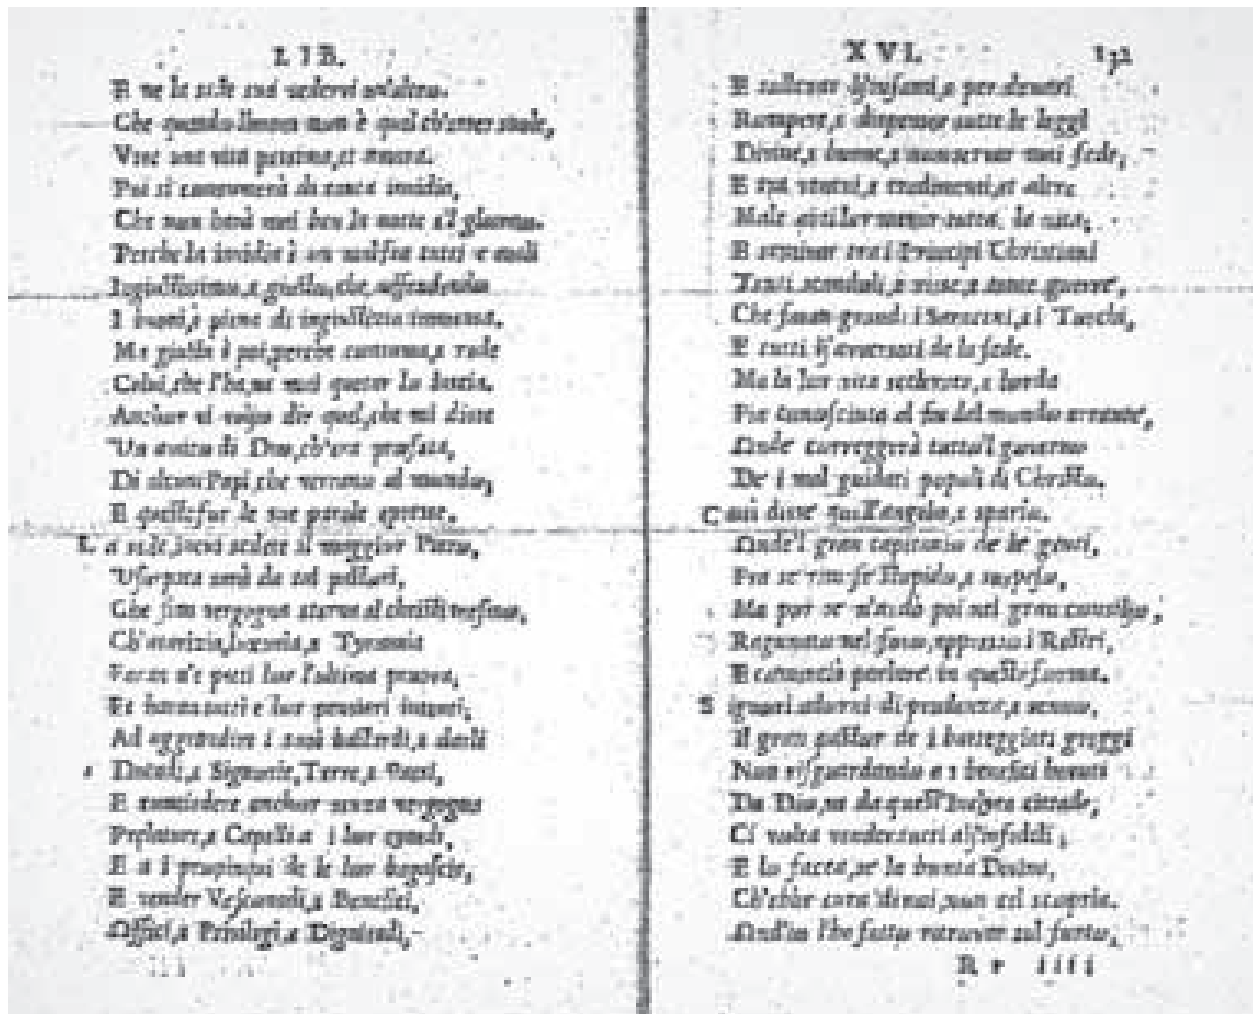 LIB.
E ne le
Che quando non è qual ch'esser suole,
Vive una vita pessima, et amara.
Poi si consumerà di tanta invidia,
Che non harà mai ben la notte e'l giorno.
Perche la invidia è un tutti e mali
Ingiustissimo, e giusto, che, offendendo
I buoni, è piena di ingiustizia immensa.
Ma giusta è poi, perche consuma, e rode
Colui, che l'ha, ne mai quetar lo lascia.
Anchor vi voljo dir quel, che mi disse
Un amico di Dio, ch'era profeta,
Di alcuni Papi, che verranno al mondo;
E queste fur le sue parole espresse.
La sede, in cui sedette il maggior Pietro,
Usurpata sarà da tai pastori,
Che fian vergogna eterna al christianesmo.
Ch'avarizia, luxuria, e Tyrannia
Faran ne' petti lor l'ultima pruova,
Et haran tutti e lor pensieri intenti,
Ad aggrandire i suoi bastardi, e darli
Ducati, e Signorie, Terre, e Paesi,
E concedere anchor senza vergogna
Prelature, e Capelli a i lor
E a i propinqui de le lor bagascie,
E vender Vescovadi, e Benefici,
Offici, e Privilegi, e Dignitadi,
XVI. 132
E sollevar gl'infami, e per denari
Rompere, e dispensar tutte le leggi
Divine, e buone, e non servar mai fede,
E tra veneni, e tradimenti, et altre
Male arti lor menar tutta la vita;
E seminar tra i Principi Christiani
Tanti scandali, e risse, e tante guerre,
Che faran grandi i Saracini, e i Turchi,
E tutti gl'aversari de la fede.
Ma la lor vita scelerata, e lorda
Fia conosciuta al fin dal mondo errante,
Onde correggerà tutto'l governo
De i mal guidati popoli di Christo.
Così disse quell'angelo, e sparìo.
Onde'l gran capitanio de le genti,
Fra se rimase stupido, e suspeso,
Ma pur se n'andò poi nel gran consiljo,
Ragunato nel foro, appresso i Rostri,
E cominciò parlare in questa forma.
Signori adorni di prudenza, e senno,
Il gran pastor de i battezzati greggi
Non risguardando a i benefici havuti
Da Dio, ne da quest'inclyta cittade,
Ci volea vender tutti agl'infideli;
E lo facea, se la bontà Divina,
Ch'ebbe cura di noi, non cel scopria.
Ond'io l'ho fatto ritrovar sul furto,
Rr iiii